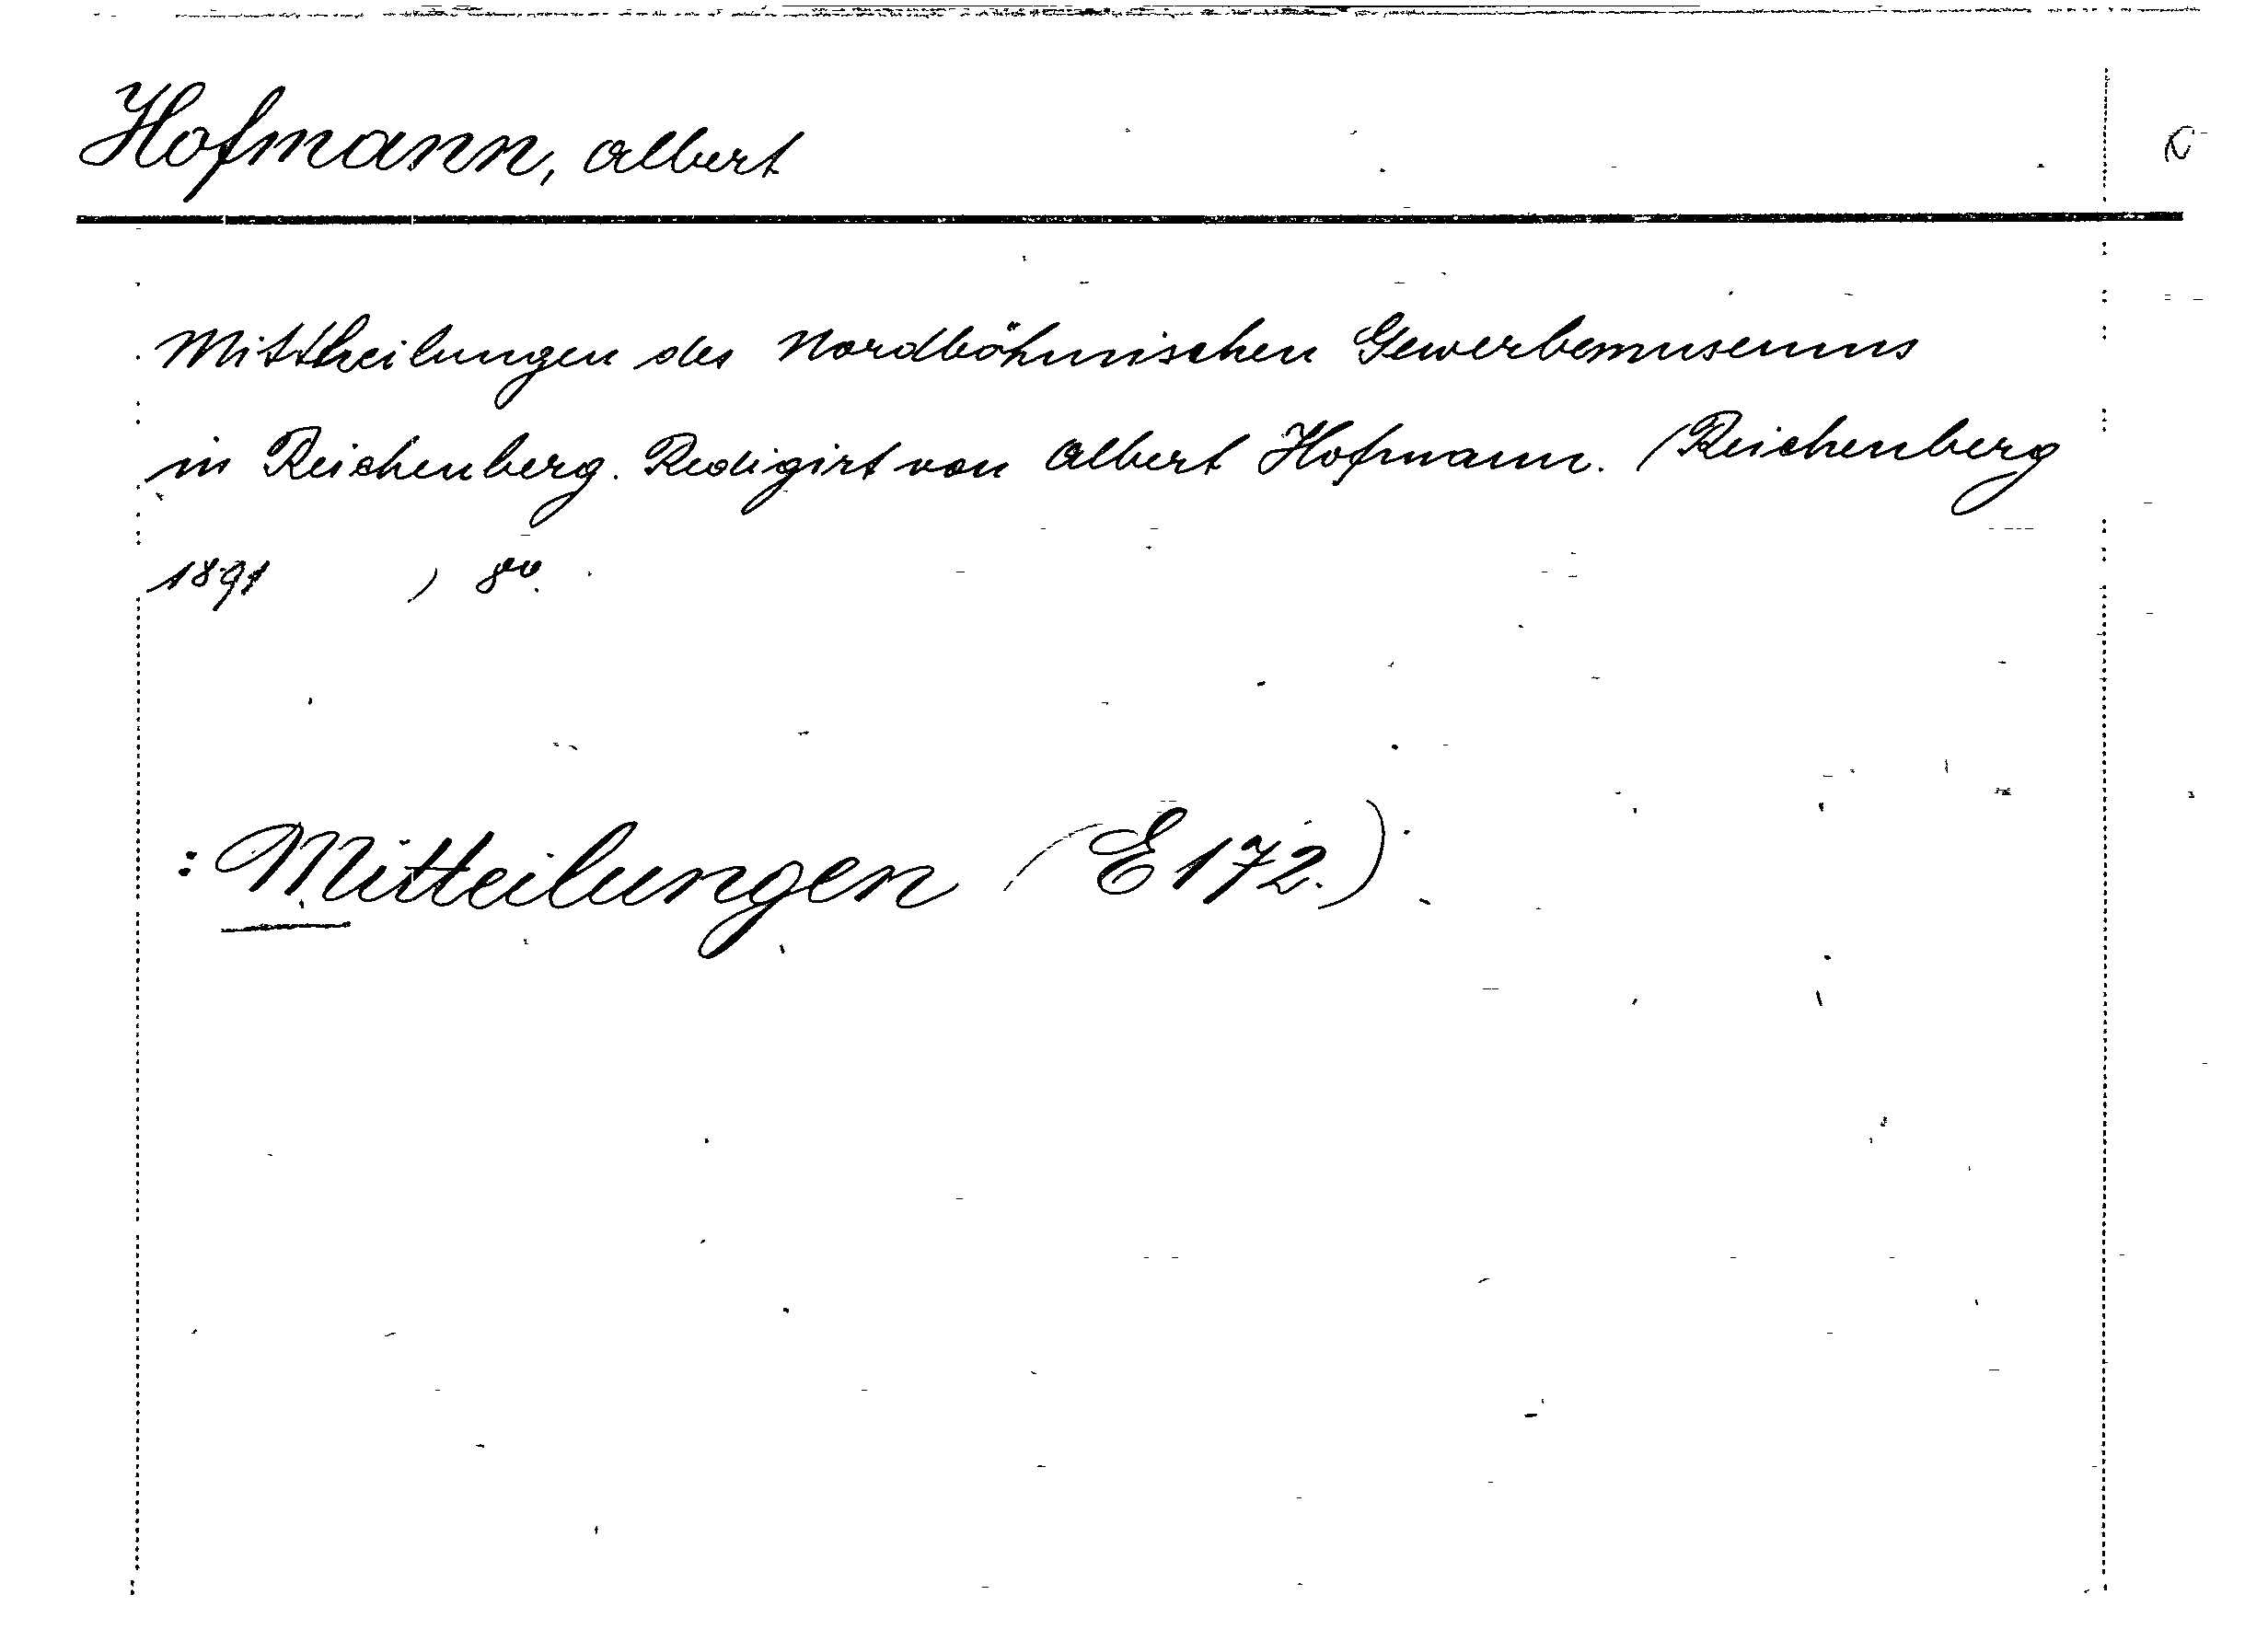 Hofmann, Albert
Mittheilungen des Nordböhmischen Gewerbemuseums
in Reichenberg. Redigirt von Albert Hofmann. (Reichenberg
1891 ) 8vo.
: Mitteilungen (E 172.)